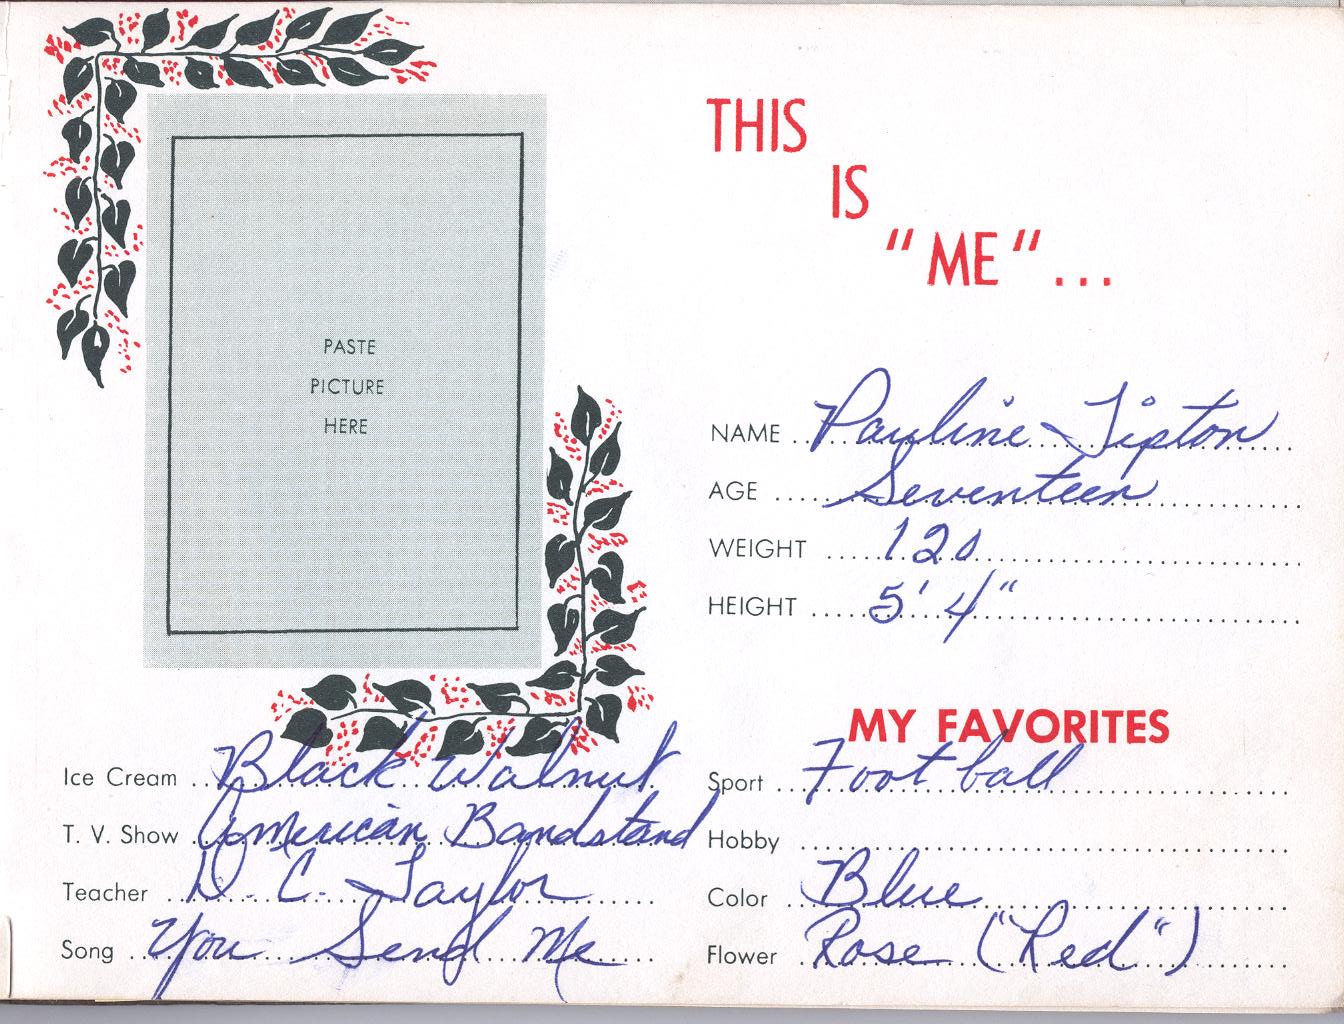 PASTE
PICTURE
HERE
THIS
IS
"ME"...
NAME Pauline Tipton
AGE Seventeen
WEIGHT 120
HEIGHT 5' 4"
MY FAVORITES
Ice Cream Black Walnut
T. V. Show American Bandstand
Teacher D. C. Taylor
Song You Send Me
Sport Foot ball
Hobby
Color Blue
Flower Rose ("Red")